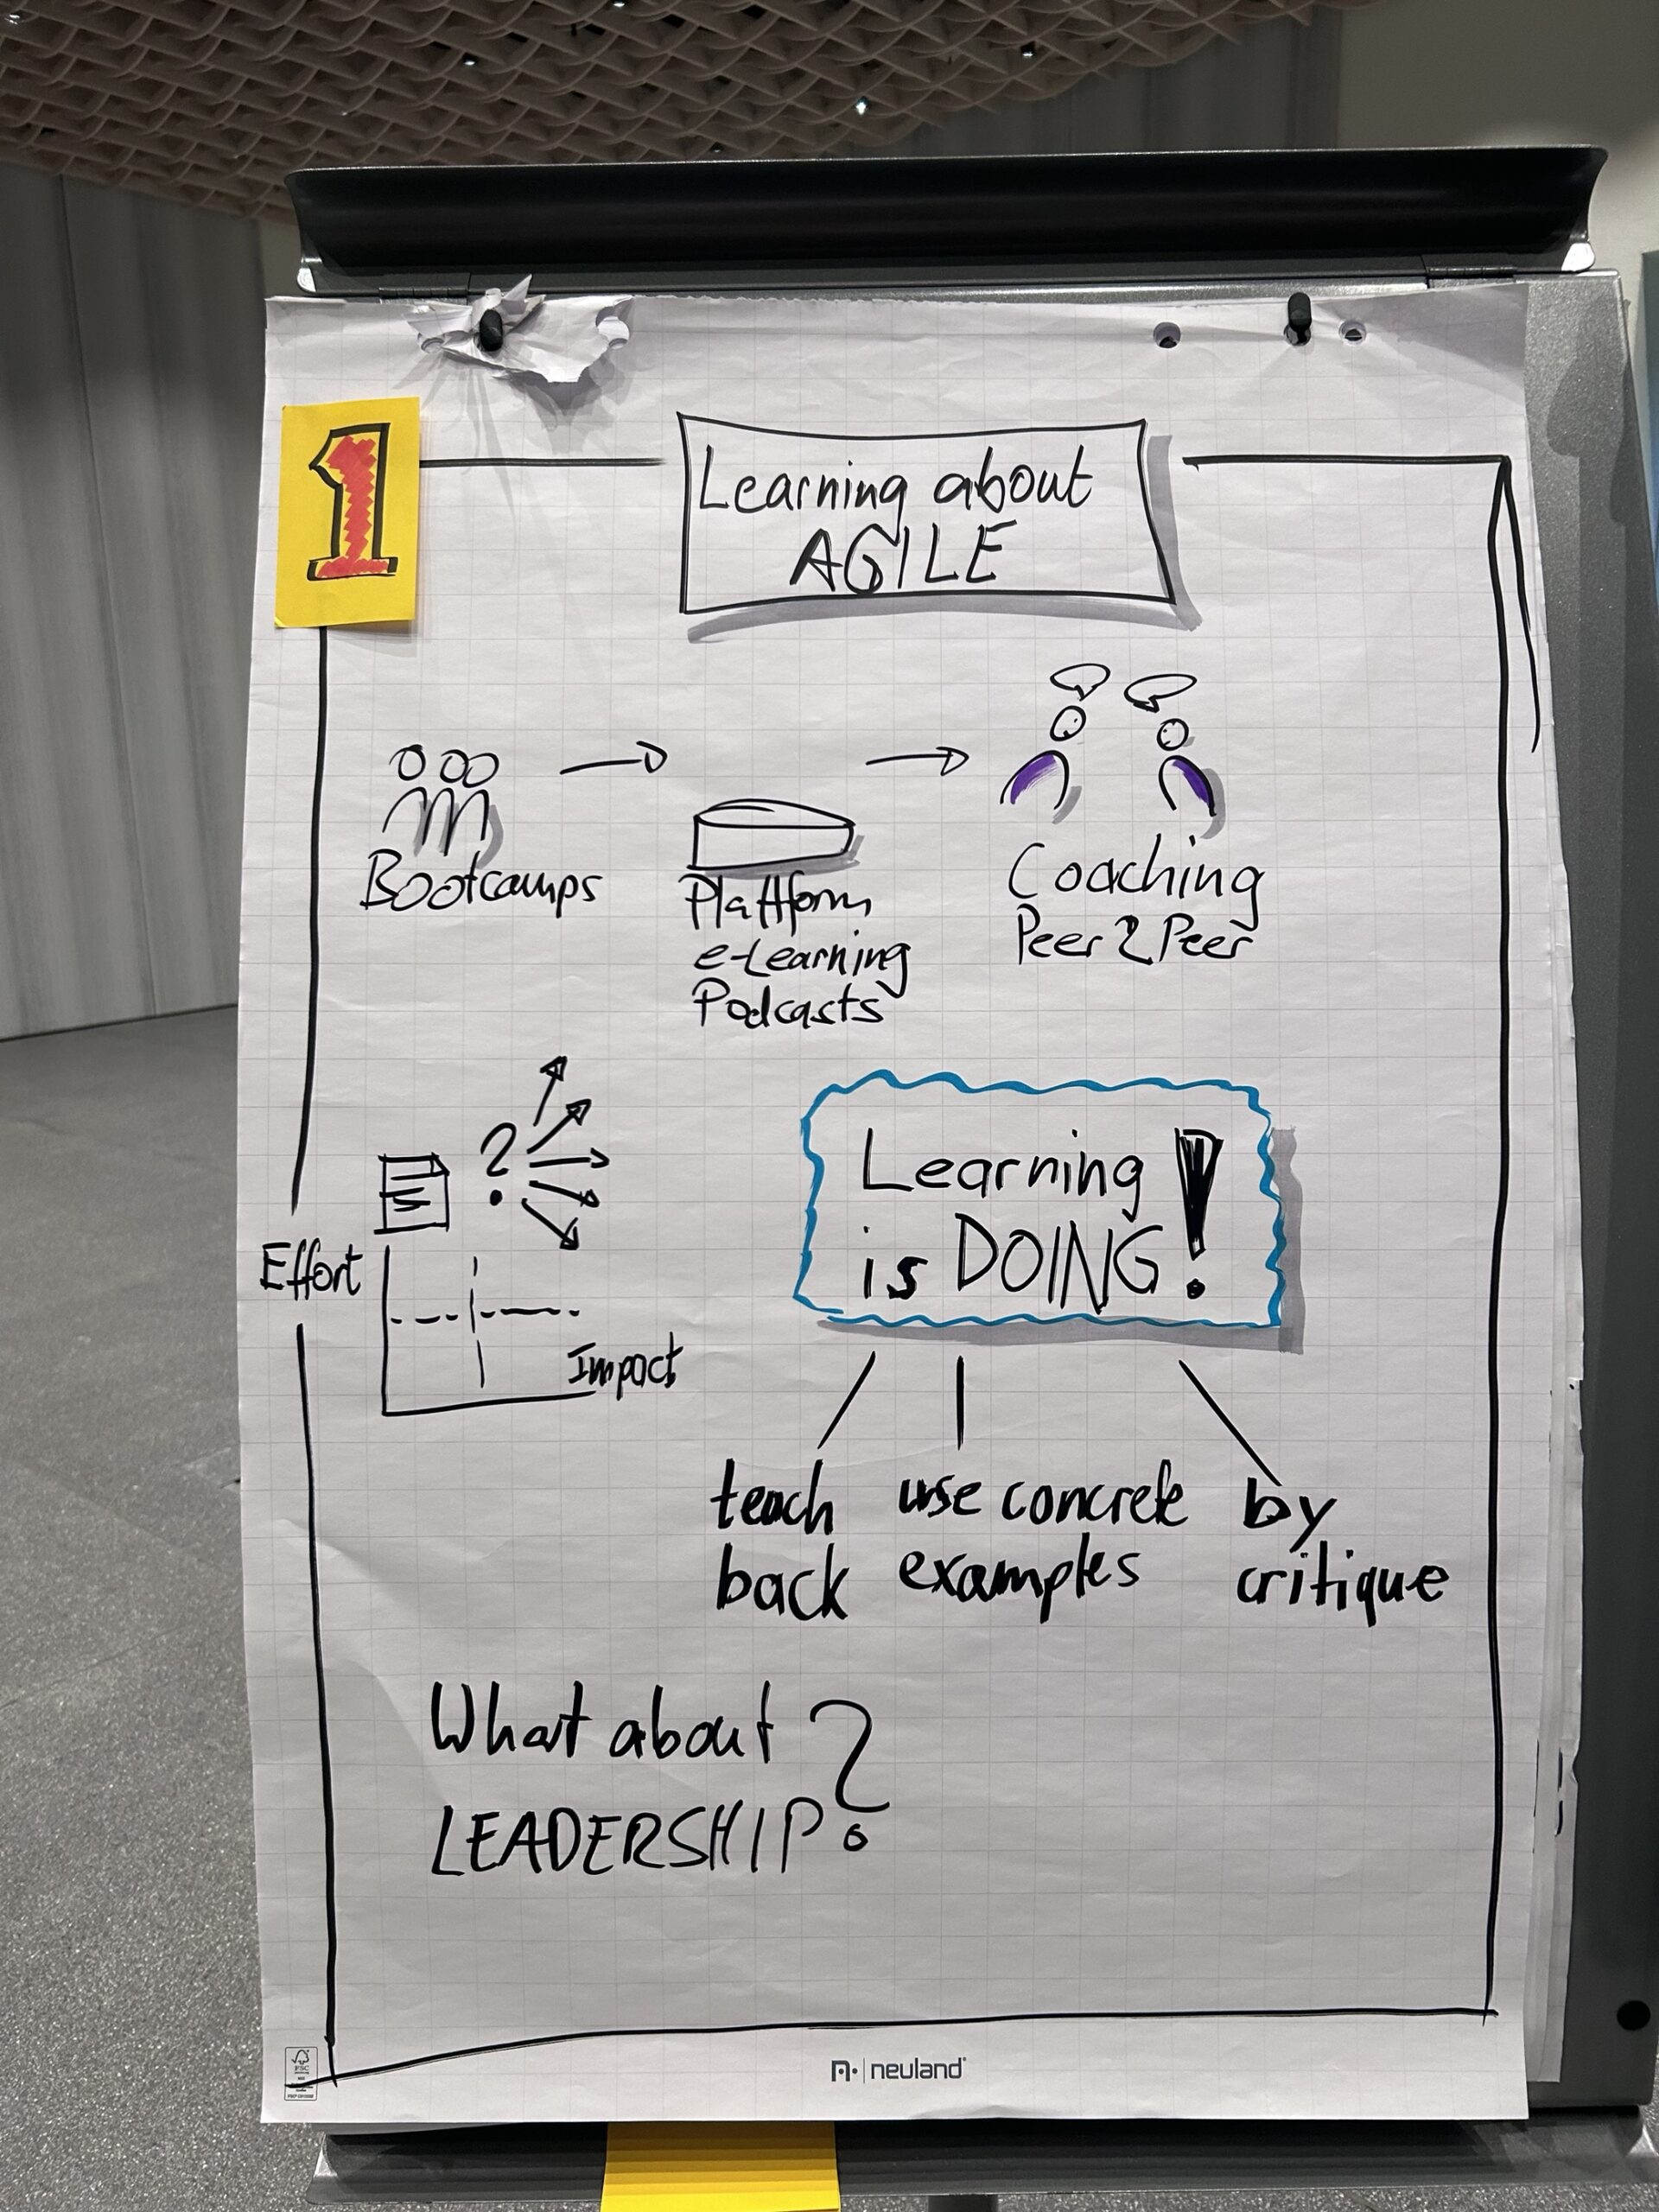 1
Learning about
AGILE
Bootcamps
Plattform
e-Learning
Podcasts
Coaching
Peer 2 Peer
?
Effort
Impact
Learning
is DOING!
teach
back
use concrete
examples
by
critique
What about
LEADERSHIP?
FSC
neuland